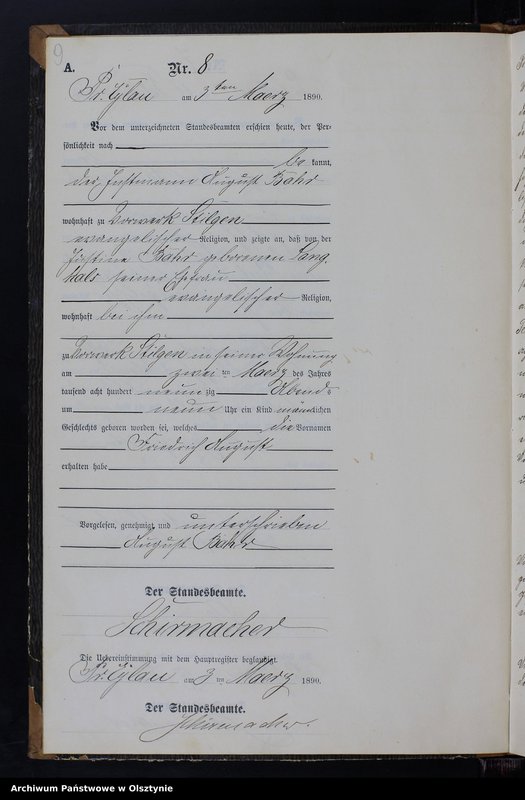 9
A.
Nr. 8
Pr. Eylau am 3ten Maerz 1890.
Vor dem unterzeichneten Standesbeamten erschien heute, der Per-
sönlichkeit nach
be kannt,
der Instmann August Bohr
wohnhaft zu Vorwerk Stilgen
evangelischer Religion, und zeigte an, daß von der
Justine Bohr geborenen Lang
Hals seiner Ehefrau
evangelischer Religion,
wohnhaft bei ihm
zu Vorwerk Stilgen in seiner Wohnung
am zwei ten Maerz des Jahres
tausend acht hundert neun zig Abend s
um neun Uhr ein Kind männlichen
Geschlechts geboren worden sei, welches die Vornamen
Friedrich August
erhalten habe
Vorgelesen, genehmigt und unterschrieben
August Bohr
Der Standesbeamte.
Schirmacher
Die Uebereinstimmung mit dem Hauptregister beglaubigt.
Pr. Eylau am 3 ten Maerz 1890.
Der Standesbeamte.
Schirmacher.
Archiwum Państwowe w Olsztynie